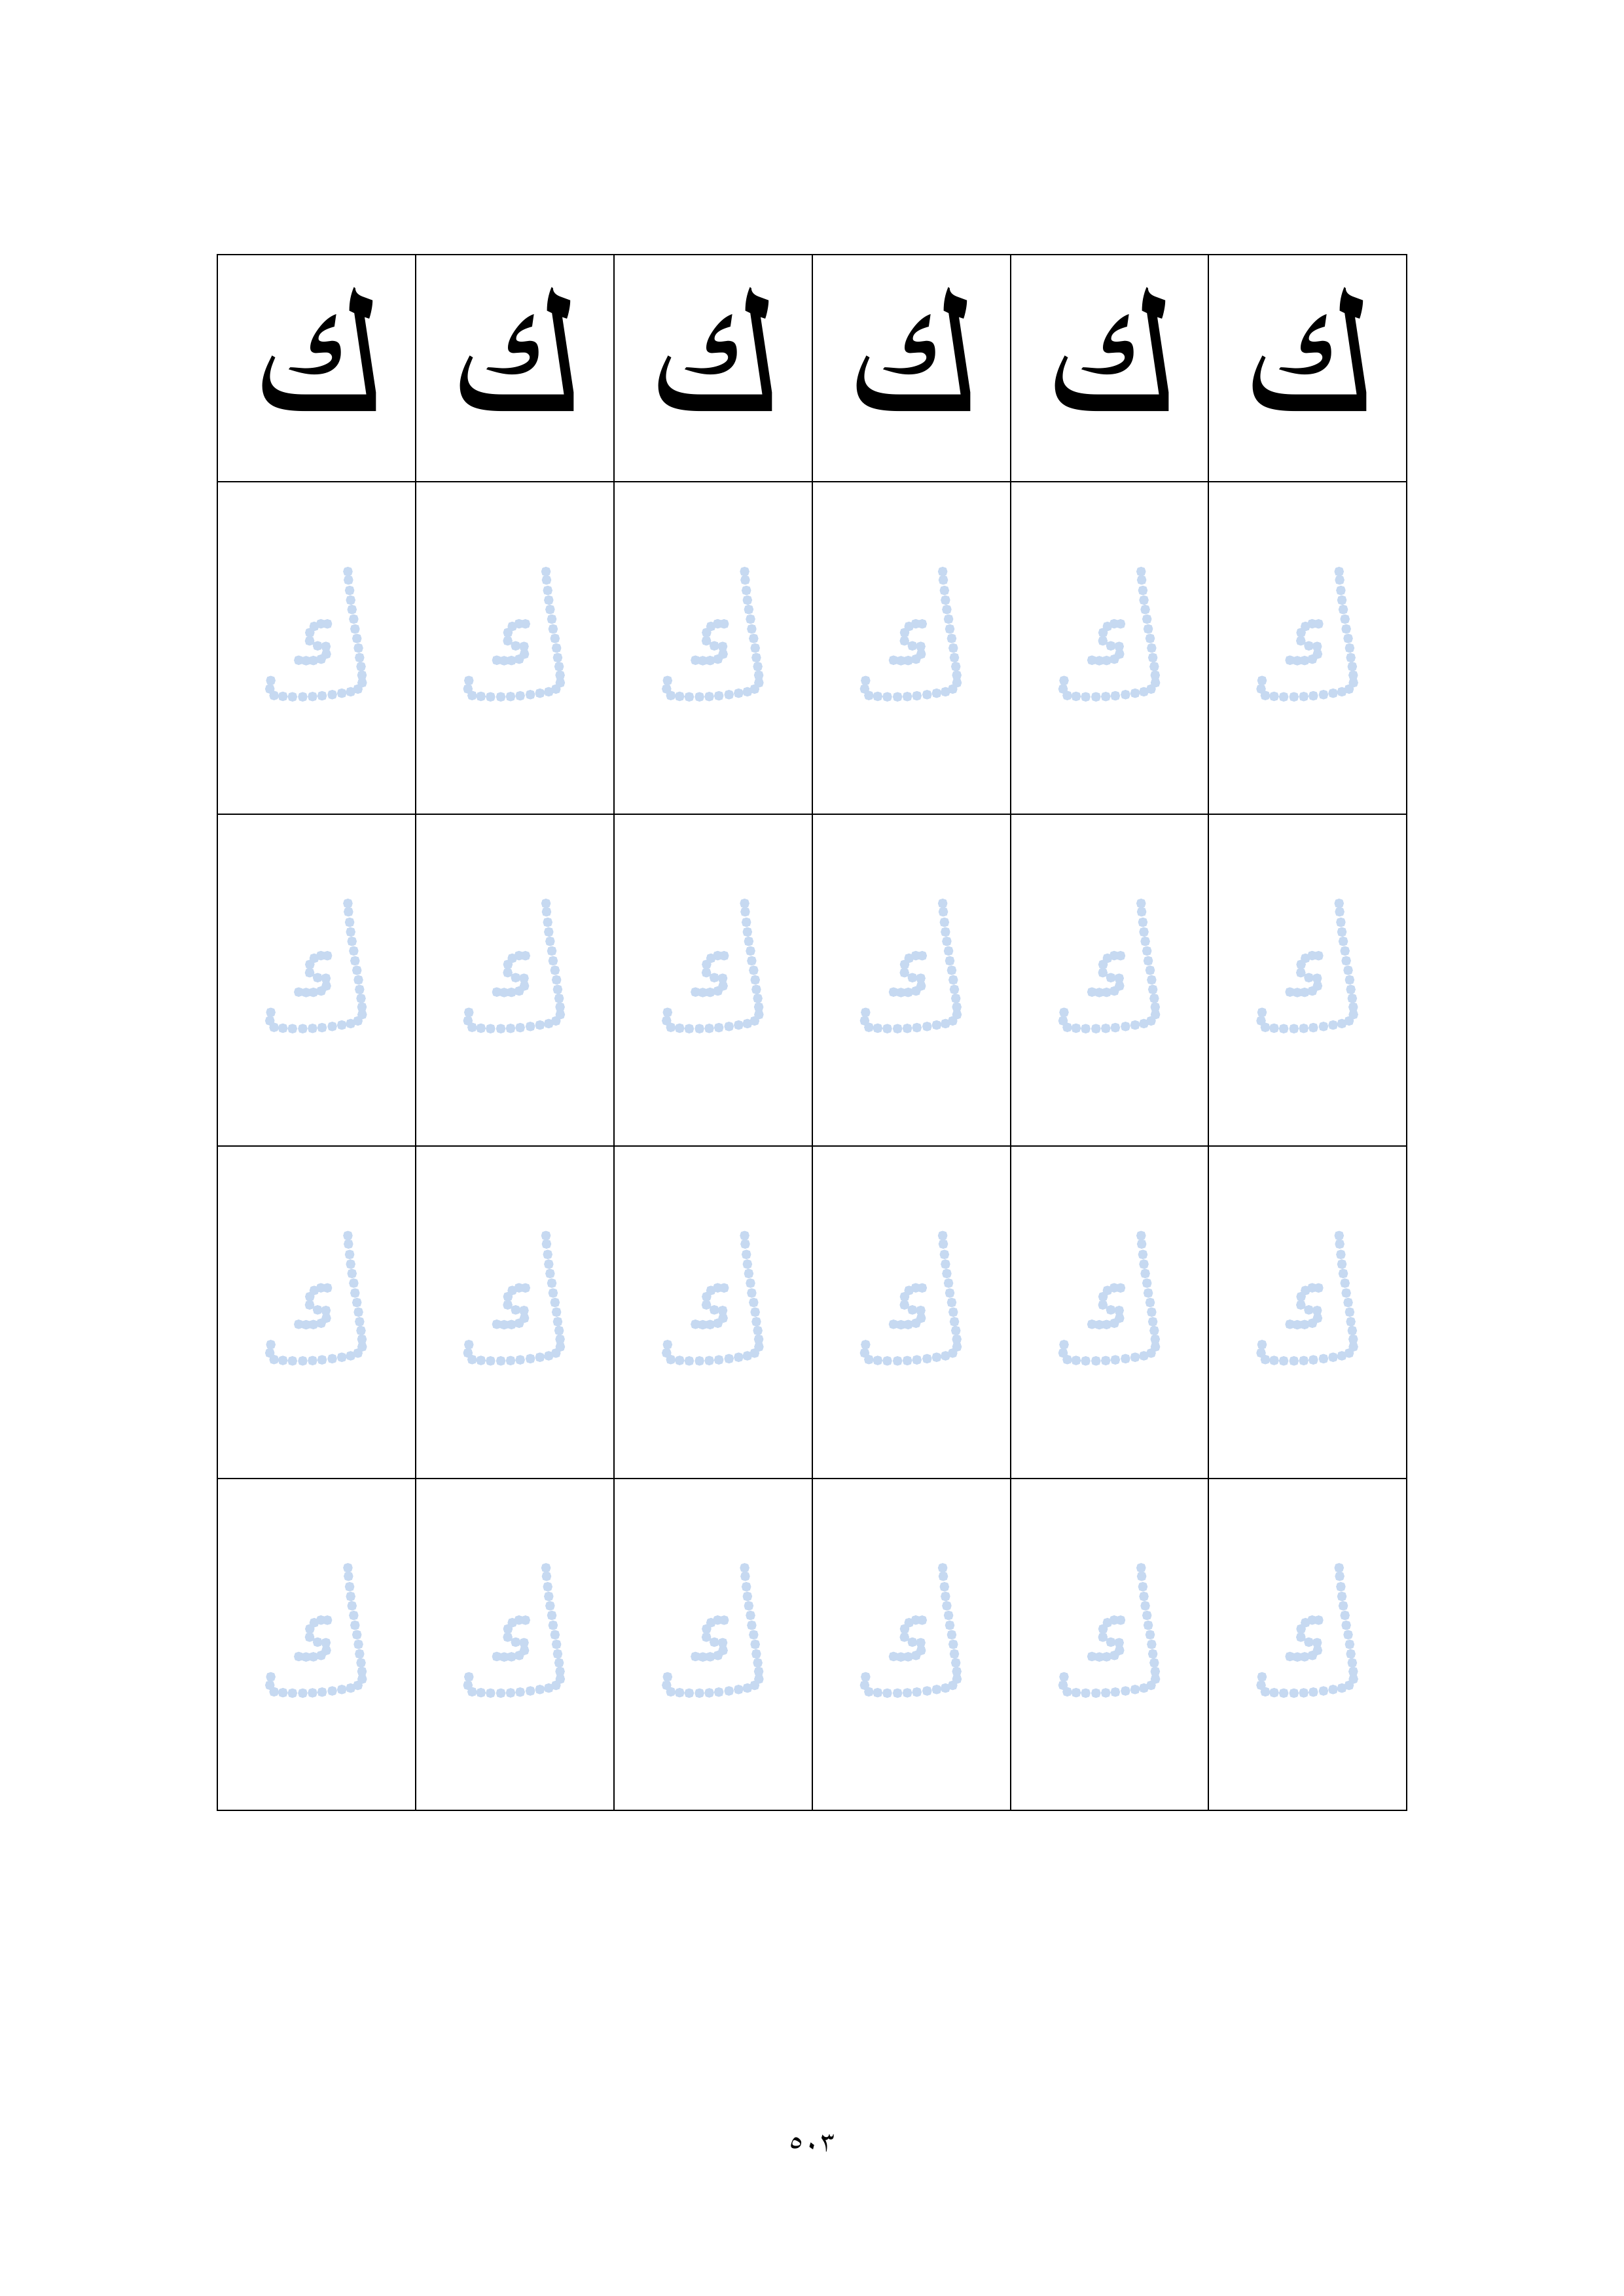 ك ك ك ك ك ك
ك ك ك ك ك ك
ك ك ك ك ك ك
ك ك ك ك ك ك
ك ك ك ك ك ك
٥٠٣